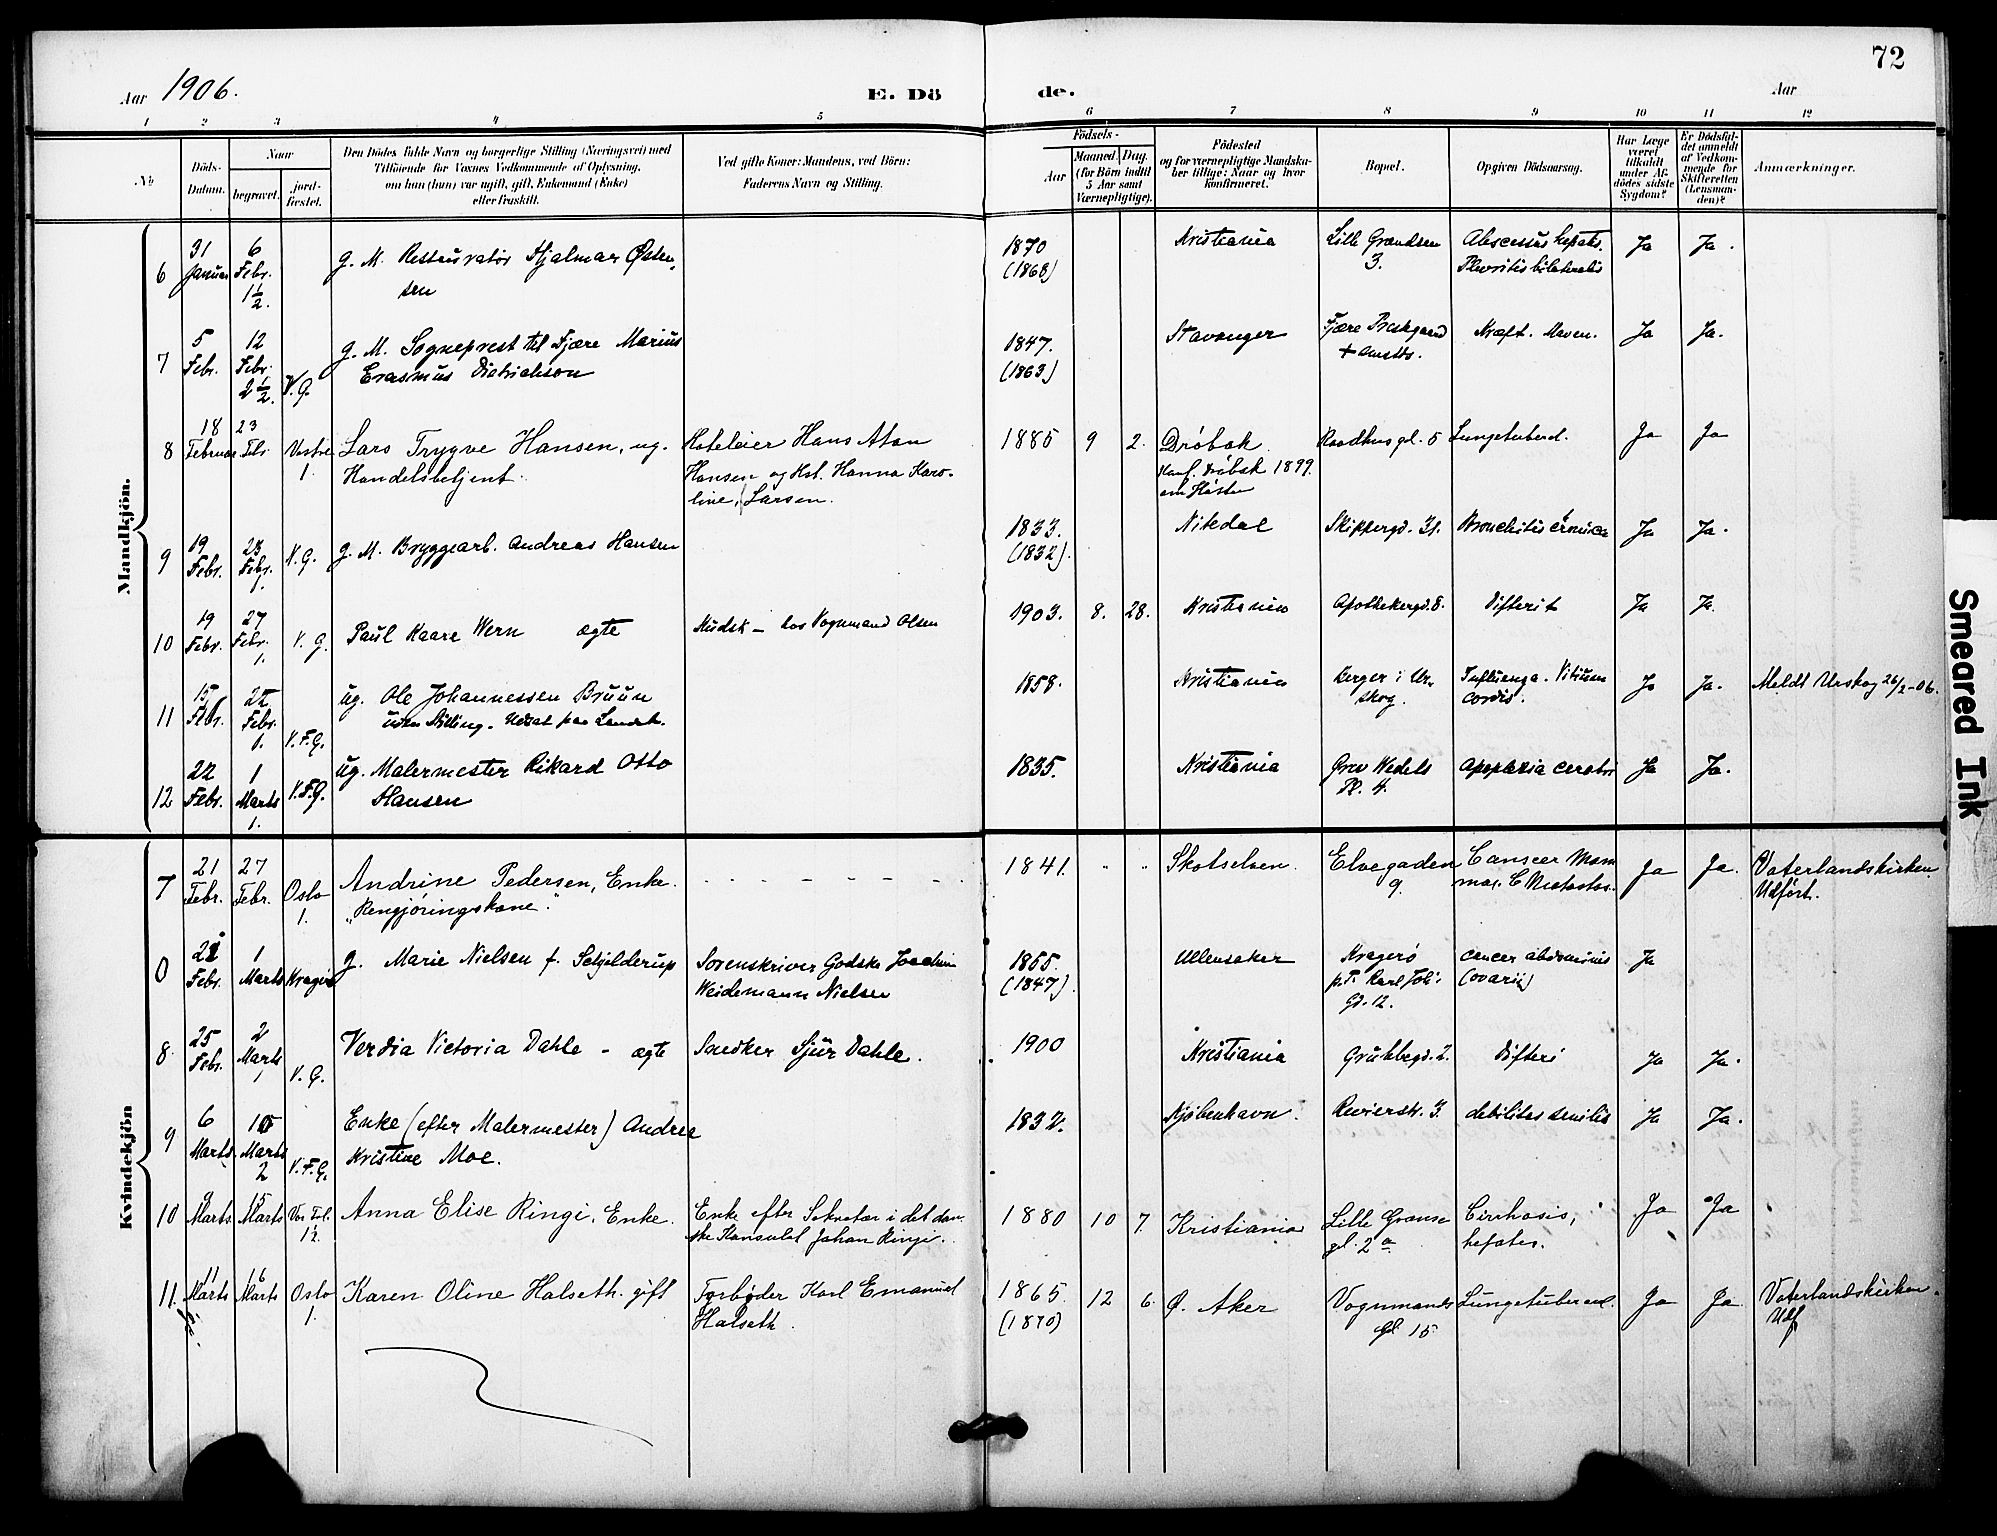 72
Aar 1906.
E. Dö
de.
Aar
1 2 3 4 5 6 7 8 9 10 11 12
No
Döds-
Datum.
Naar
begravet.
jord-
fæstet.
Den Dödes fulde Navn og borgerlige Stilling (Næringsvei) med
Tilföiende for Voxnes Vedkommende af Oplysning,
om han (hun) var ugift, gift, Enkemand (Enke)
eller fraskilt.
Ved gifte Koner: Mandens, ved Börn:
Faderens Navn og Stilling.
Födsels-
Aar
Maaned. Dag.
(for Börn indtil
5 Aar samt
Værnepligtige).
Födested
og for værnepligtige Mandska-
ber tillige: Naar og hvor
konfirmeret.
Bopæl.
Opgiven Dödsaarsag.
Har Læge
været
tilkaldt
under Af-
dödes sidste
Sygdom?
Er Dödsfal-
det anmeldt
af Vedkom-
mende for
Skifteretten
(Lensman-
den)?
Anmærkninger.
Mandkjön.
6 31 Januar 6 Febr. 1½. g. M. Restauratør Hjalmar Østen-
sen 1870 (1868) Kristiania Lille Grændsen 3. Abscessus hepatis. Pleuritis bilateralis Ja Ja.
7 5 Febr. 12 Febr. 2½. V. G. g. M. Sogneprest til Fjære Marius
Erasmus Dietrichson 1847. (1863) Stavanger Fjære Prestgaard Kræft. Maven. Ja Ja.
8 18 Februar 23 Febr. Vestre 1. Lars Trygve Hansen, ug.
Handelsbetjent. Hoteleier Hans Aton
Hansen og Hst. Hanna Karo-
line, f. Larsen. 1885 9 2. Drøbak.
Konf. Drøbak 1899.
om Høsten Raadhusgd. 5 Lungetuberd. Ja Ja
9 19 Febr. 23 Febr. 1. V. G. g. M. Bryggearb. Andreas Hansen 1833. (1832). Nitedal Skippergd. 31. Bronchitis cronica Ja Ja.
10 19 Febr. 27 Febr. 1. V. G. Paul Kaare Wern ægte hos Vognmand Olsen 1903. 8. 28. Kristiania Apothekergd. 8. Difterit Ja Ja.
11 15 Febr. 22 Febr. 1. V. F. G. ug. Ole Johannessen Bruun
uden Stilling. Udsat paa Landet. 1858. Kristiania Berger i Ur-
skog. Influenza. Vitium
cordis. Ja Ja. Meldt Urskog 26/2-06.
12 22 Febr. 1 Marts 1. V. F. G. ug. Malermester Rikard Otto
Hansen 1835. Kristiania Grev Wedels
Pl. 4. Apoplexia cerebri Ja Ja.
Kvindekjön
7 21 Febr. 27 Febr. Oslo 1. Andrine Pedersen, Enke.
"Rengjøringskone". 1841. " " Skotselven. Elvegaden
9. Canseer Mam
mae. C Metastas. Ja Ja. Vaterlandskirken.
Udført.
0 21 Febr. 1 Marts Kragerø g. Marie Nielsen f. Schjelderup Sorenskriver Godske Joachim
Weidemann Nielsen 1855. (1847). Ullensaker Kragerø
p.t. Karl Joh.
Gd. 12. cancer abdominis
(ovarii) Ja
8. 25 Febr. 2 Marts 1 V. G. Verdia Victoria Dahle - ægte Snedker Sjur Dahle. 1900 Kristiania Grubbegd. 2. Difteri Ja Ja.
9 6 Marts 10 Marts 2 V. F. G. Enke (efter Malermester) Andrea
Kristine Moe. 1832. Kjøbenhavn. Revierstr. 3. debilitas senilis Ja Ja.
10 9 Marts. 15 Marts Vor Frl. 1½. Anna Elise Ringi, Enke. Enke efter Sekretær i det dan-
ske Konsulat Johan Ringi. 1880 10 7. Kristiania Lille Grænse
gd. 2a Cirrhosis,
hepates. Ja Ja
11. 11 Marts 16 Marts Oslo 1. Karen Oline Halseth. gift Forbyder Karl Emanuel
Halseth. 1865. (1870) 12 6. Ø. Aker Vognmands
gd 15 Lungetubercul. Ja Ja Vaterlandskirken.
Udf
Smeared Ink